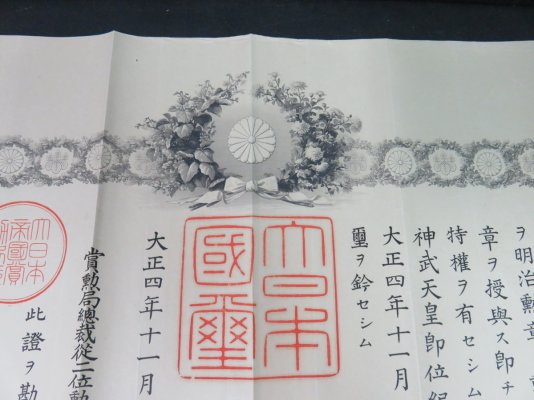 ヲ明治勲章
章ヲ授與ス即チ
特權ヲ有セシム
神武天皇即位紀
大正四年十一月
璽ヲ鈐セシム
大日本
國璽
大正四年十一月
賞勲局總裁從二位勲
大日本
帝國賞
此證ヲ勘